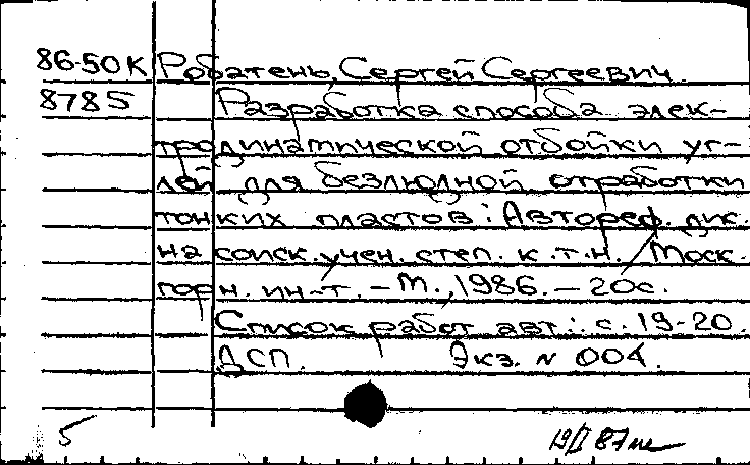 86-50К Робатень, Сергей Сергеевич.
8785 Разработка способа элек-
тродинамической отбойки уг-
лей для безлюдной отработки
тонких пластов: Автореф. дис.
на соиск. учен. степ. к.т.н. / Моск.
горн. ин-т. - М., 1986. - 20с.
Список работ авт.: с. 19-20.
ДСП. Экз. N 004.
5 19/I 87